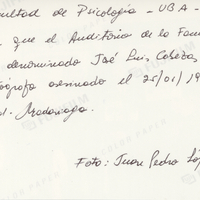 cultad de Psicología - UBA -
que el Auditorio de la Facu
denominado José Luis Cabezas,
ógrafo asesinado el 25/01/19
Madariaga.
Foto: Juan Pedro Ló